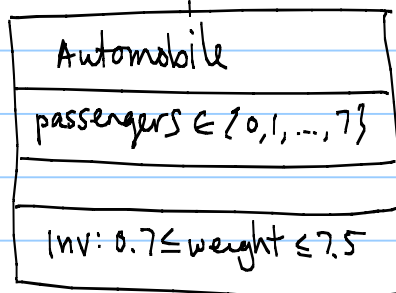 Automobile
passengers ∈ {0,1,...,7}
Inv: 0.7≤weight≤7.5